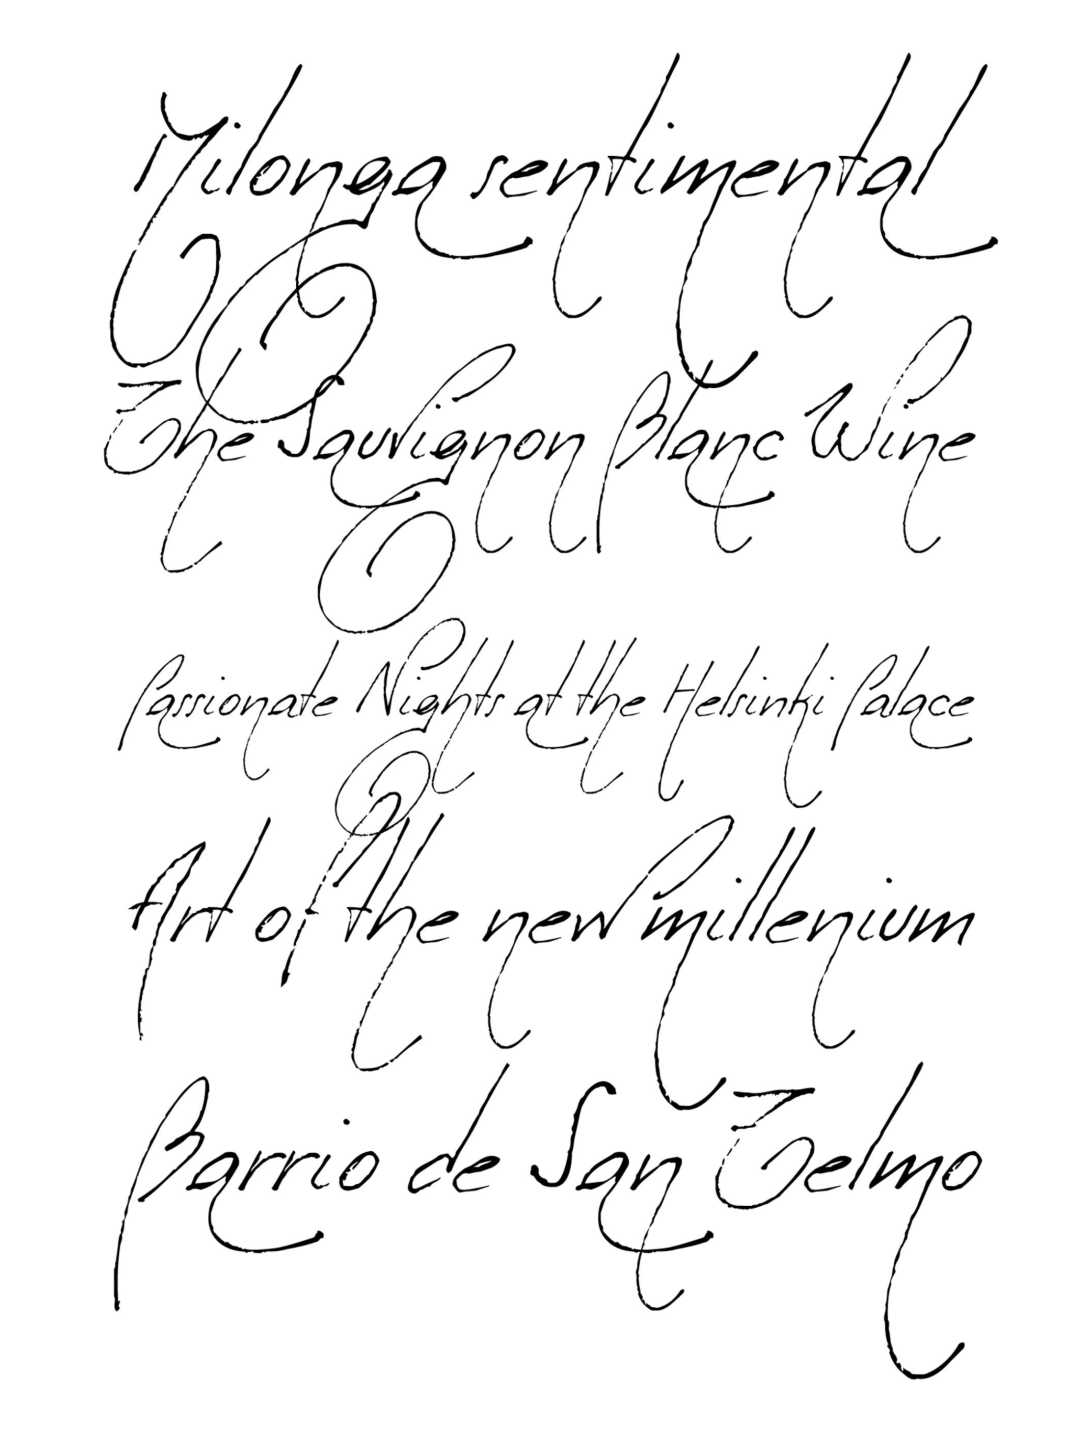 Milonga sentimental
The Sauvignon Blanc Wine
Passionate Nights at the Helsinki Palace
Art of the new millenium
Barrio de San Telmo